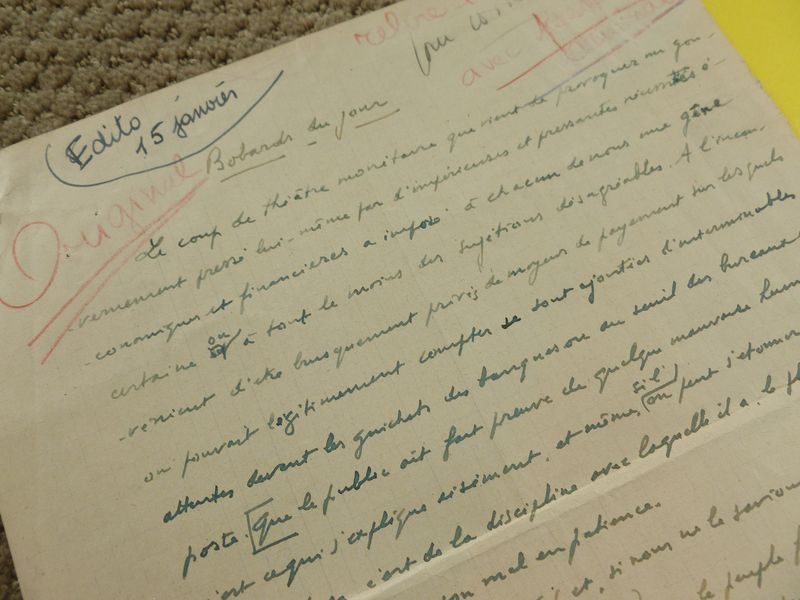 relire
avec
Edito
15 janvier
Original
Bobards du jour
Le coup de théâtre monétaire qui vient de provoquer un gou-
-vernement pressé lui-même par d'impérieuses et pressantes nécessités é-
-conomiques et financières a imposé à chacun de nous une gêne
certaine ou à tout le moins des sujétions désagréables. A l'incon-
-vénient d'être brusquement privés de moyens de payement sur lesquels
on pouvait légitimement compter se sont ajoutées d'interminables
attentes devant les guichets des banques ou au seuil des bureaux de
poste. Que le public ait fait preuve de quelque mauvaise humeur
c'est ce qui s'explique aisément, et même, si l'on peut s'étonner
c'est de la discipline avec laquelle il a le pl
mal en patience.
et, si nous ne le savions
le peuple f